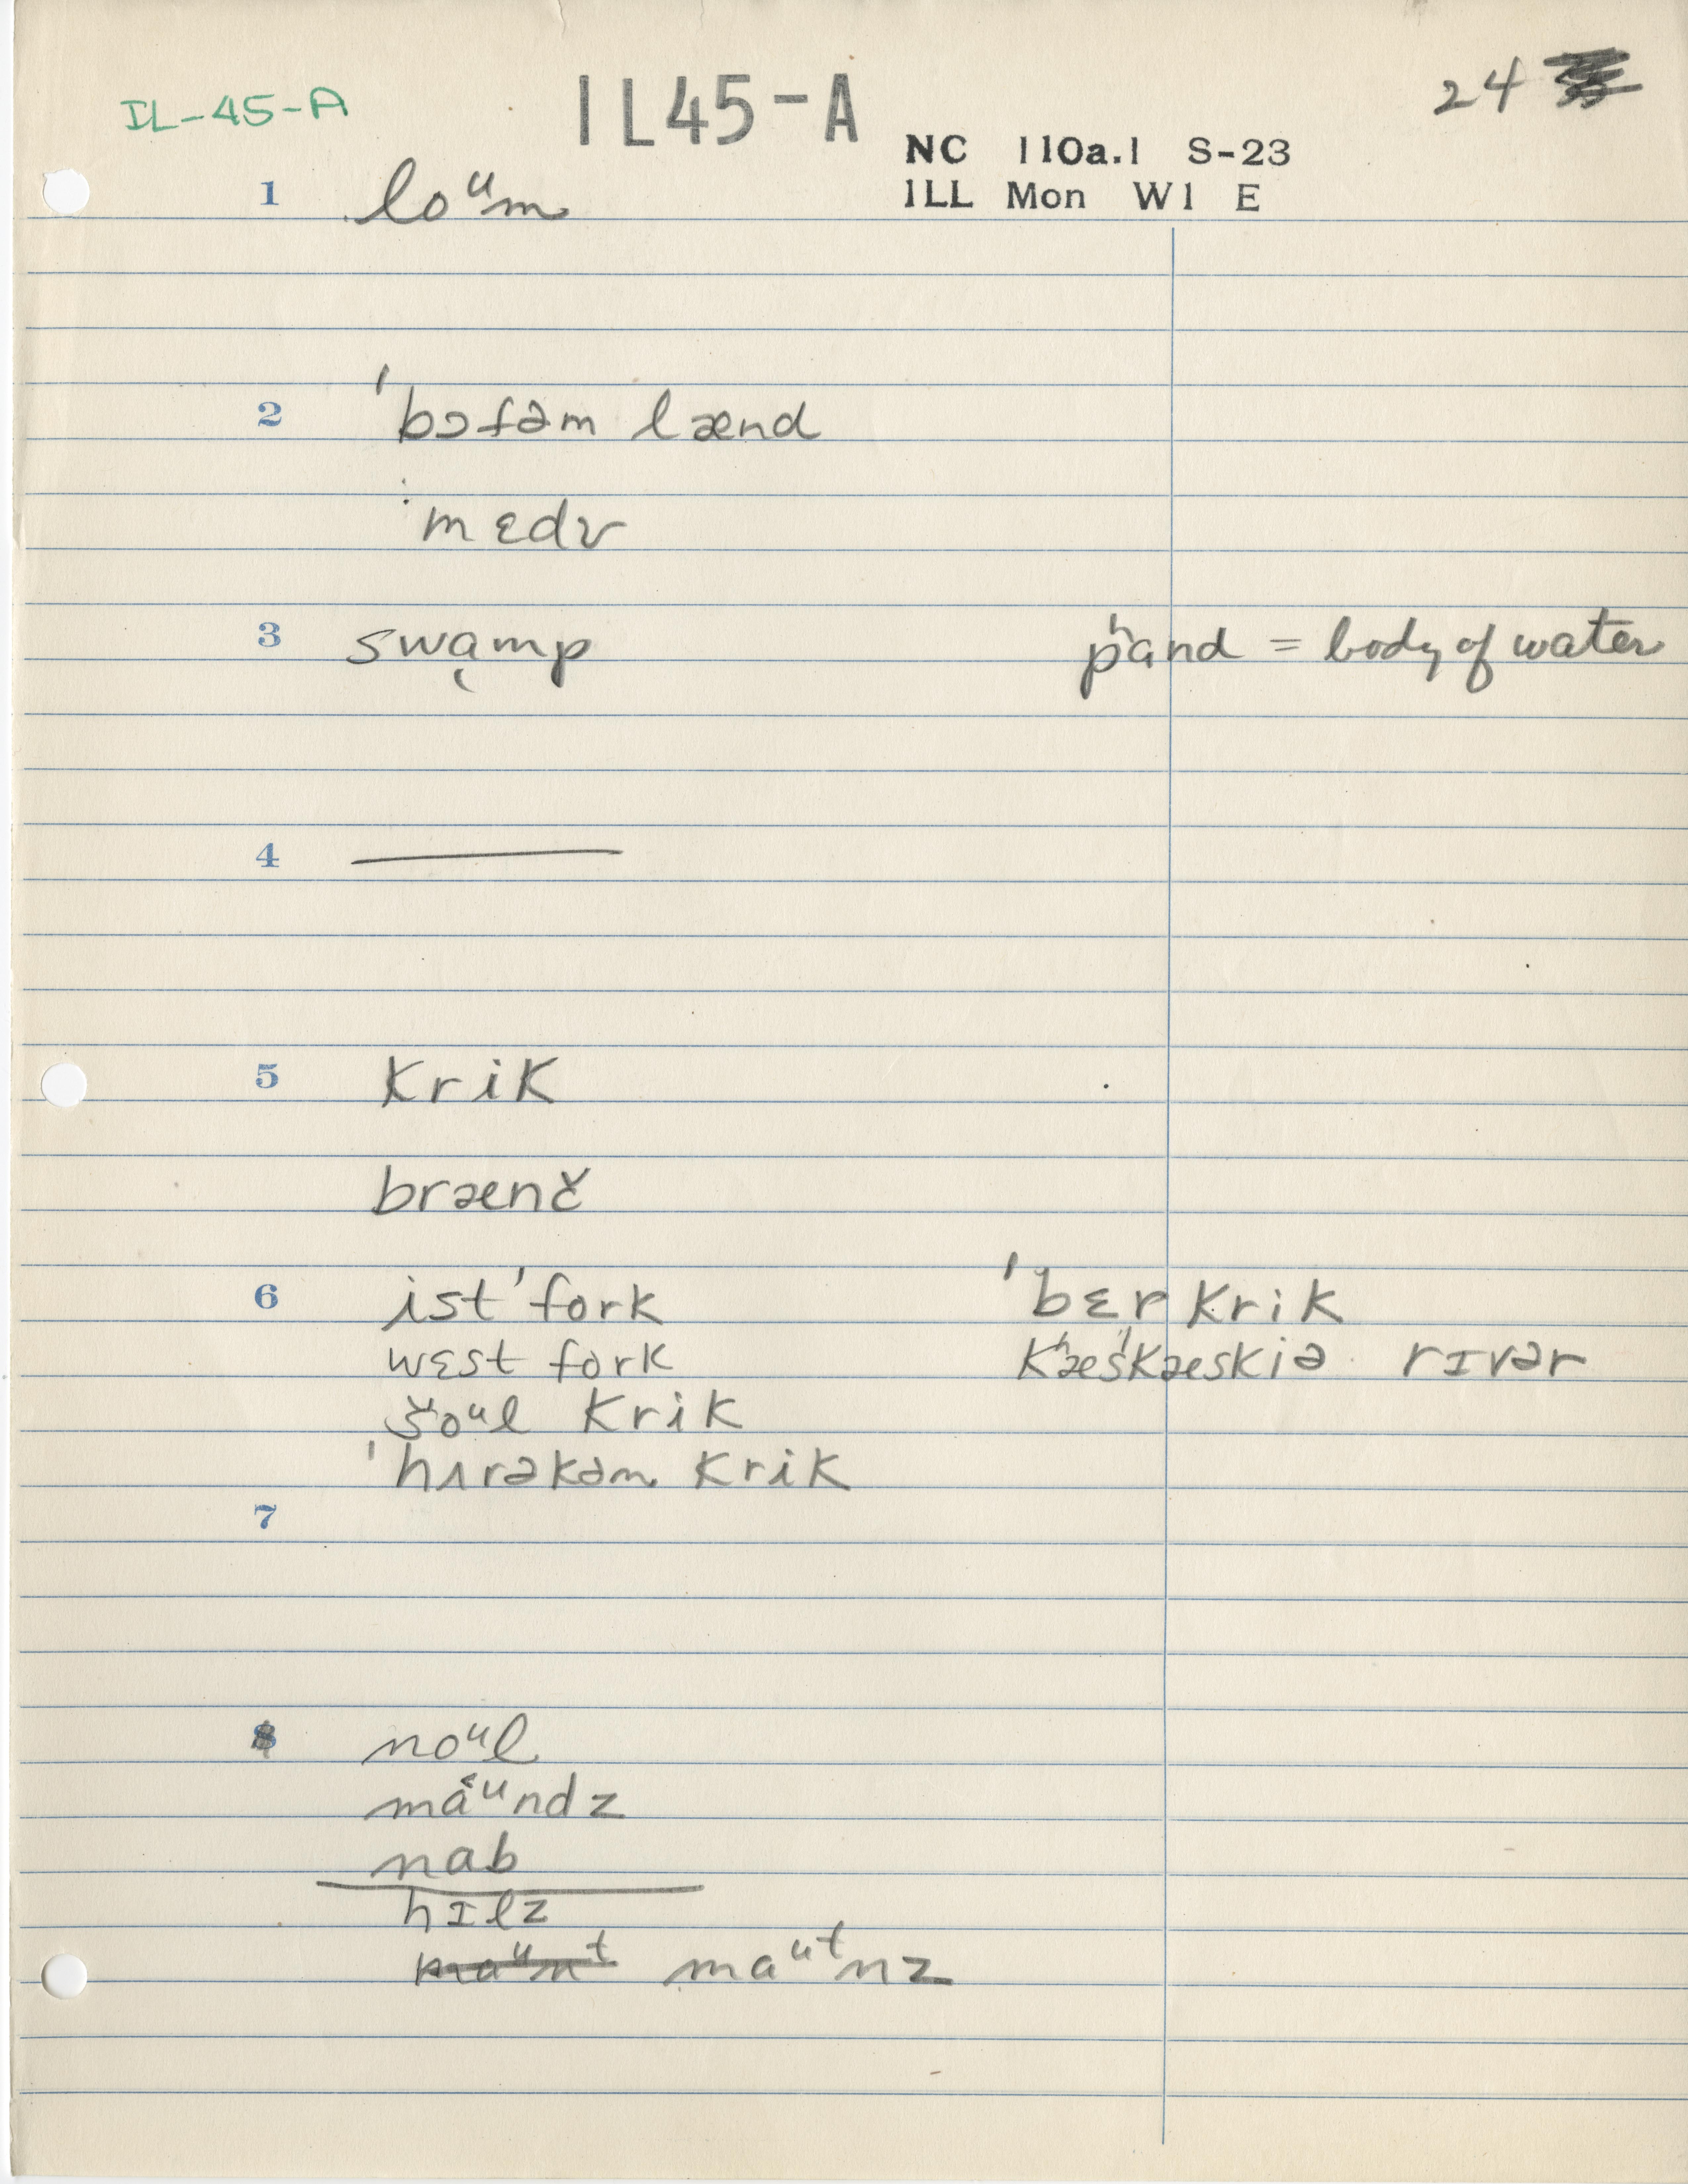 IL-45-A IL45-A 24
NC 110a.1 S-23
1 loᵘm ILL Mon W1 E
2 ˈbɔtəm lænd
ˈmɛdɤ
3 swɑmp pʰand = body of water
4 ———
5 krik
brænč
6 ist ˈfork ˈbɛr krik
wɛst fork kʰæsˈkæskiə rɪvər
šoᵘl krik
ˈhɪrəkəm krik
7
8 noᵘl
mâᵘndz
nab
hɪlz
maᵘnᵗ maᵘᵗnz